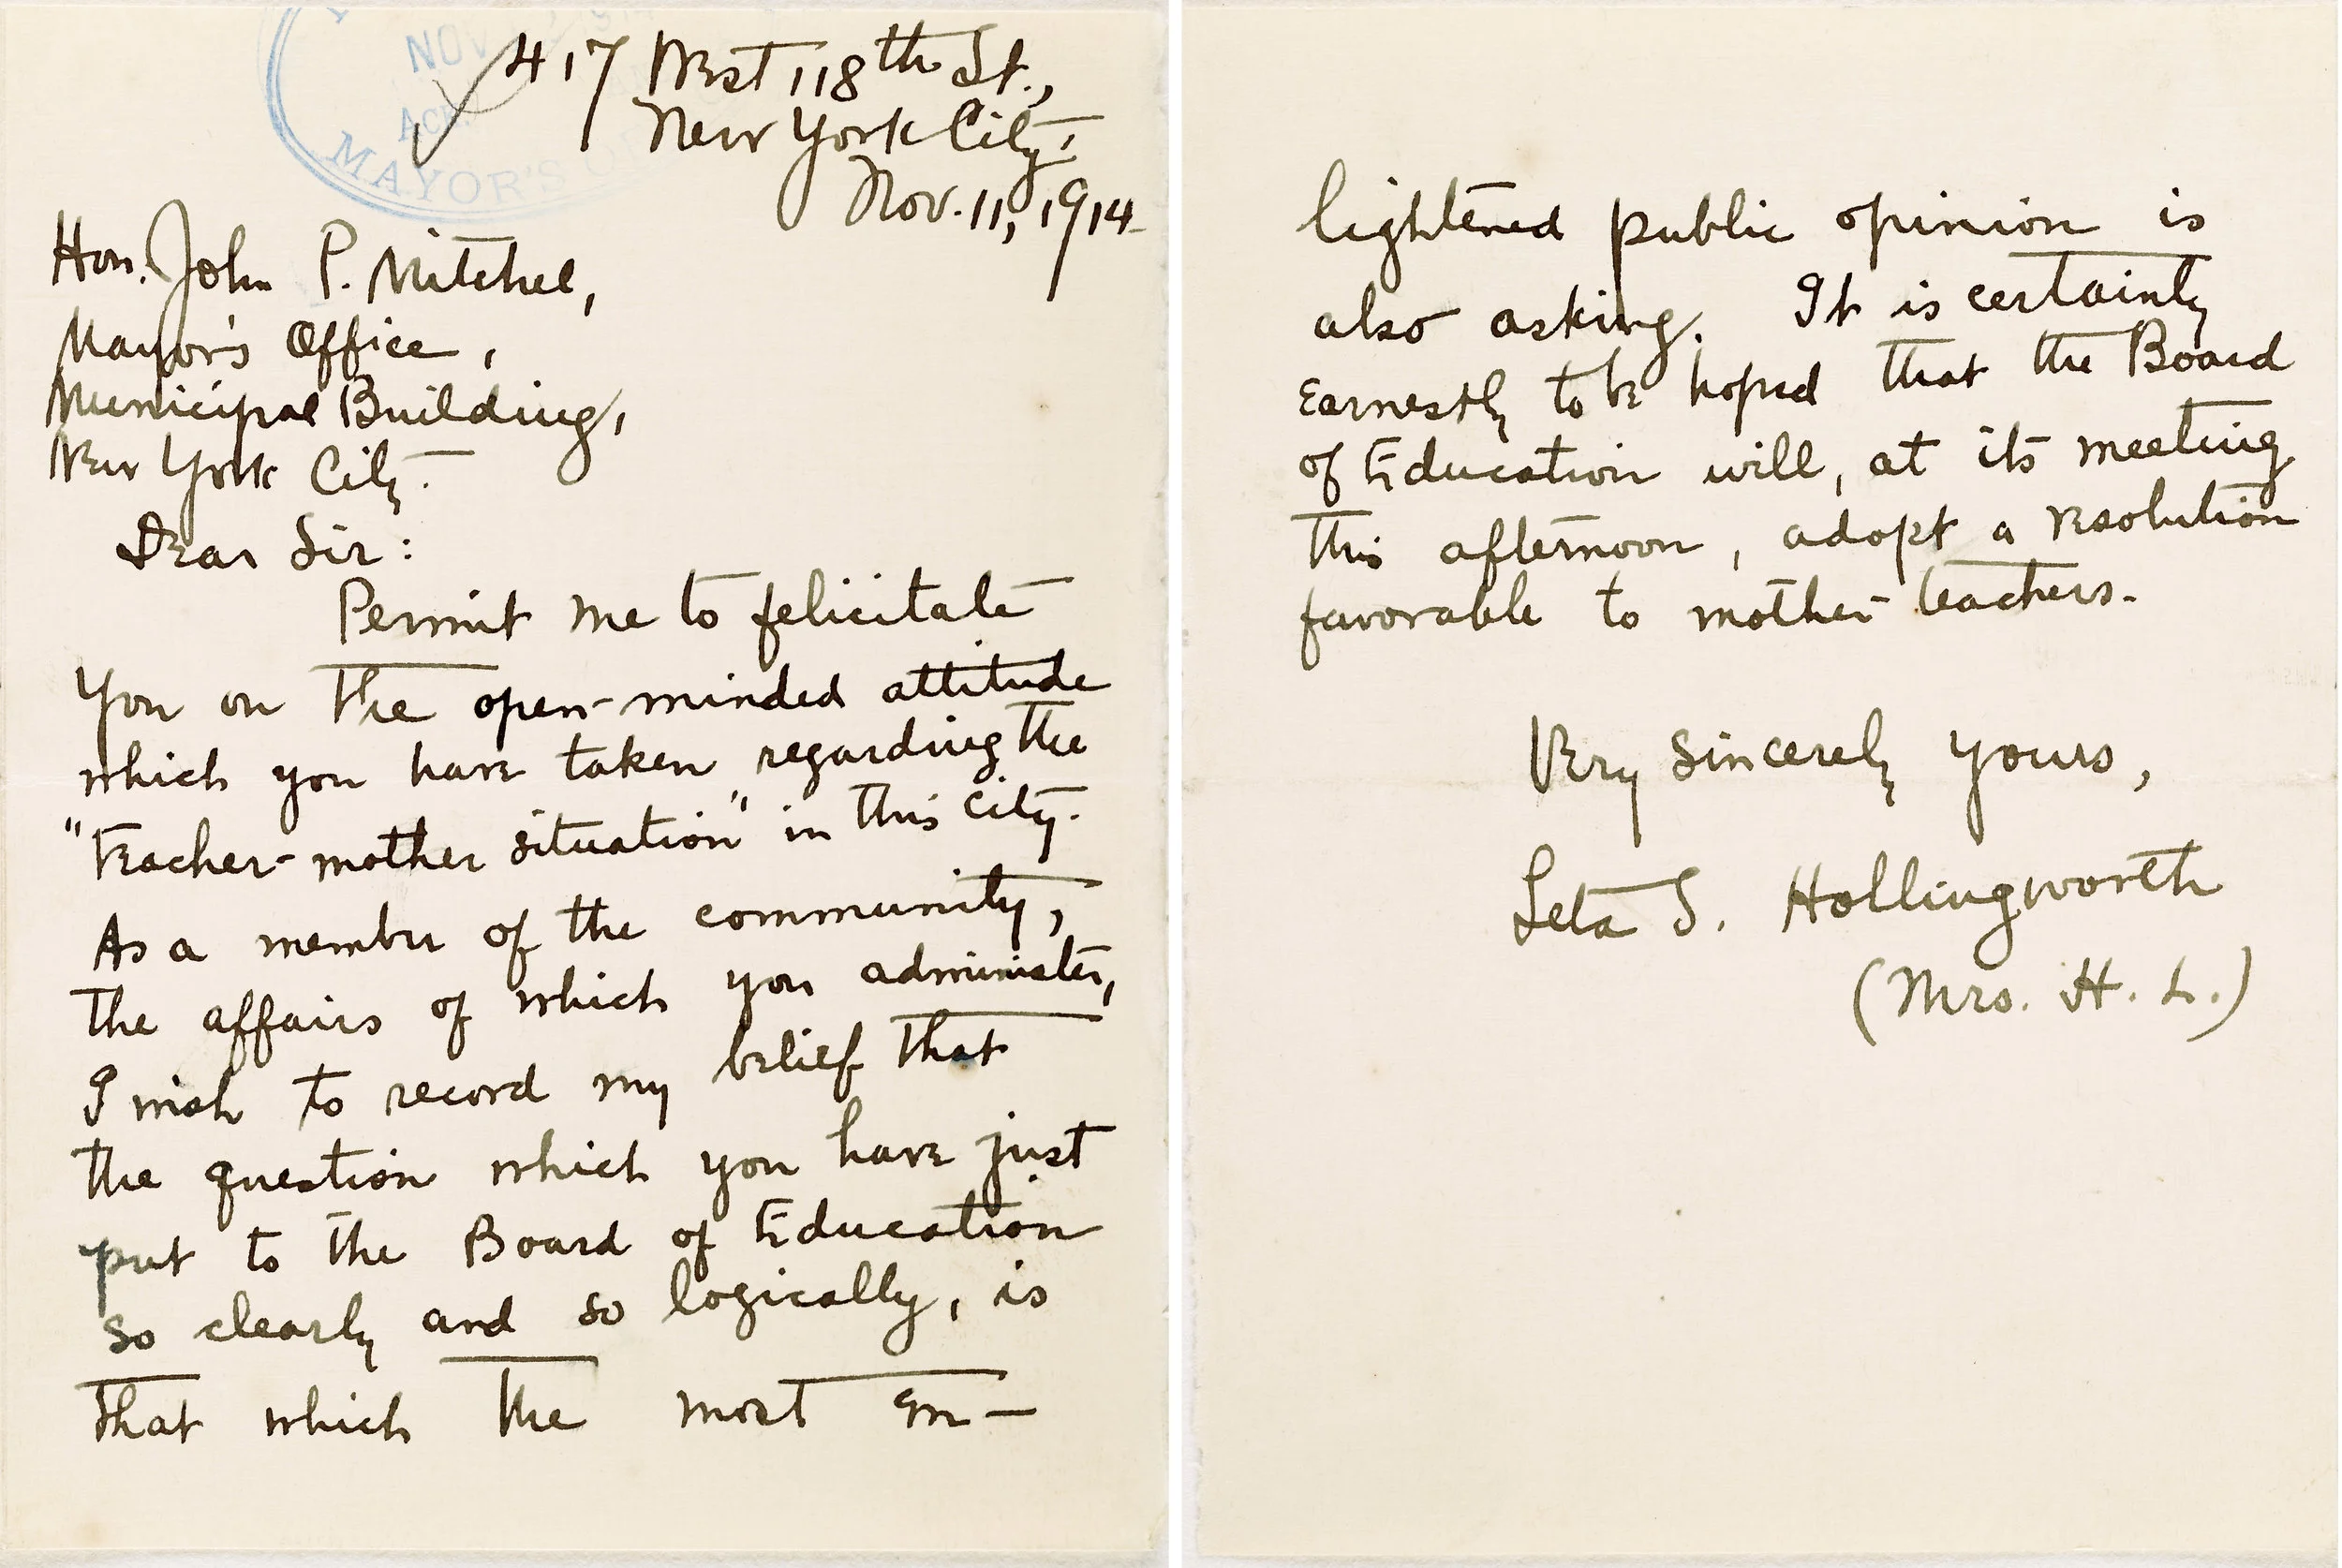 NOV
ACK
MAYOR'S O
417 West 118th St.,
New York City,
Nov. 11, 1914.
Hon. John P. Mitchel,
Mayor's Office,
Municipal Building,
New York City.
Dear Sir:
Permit me to felicitate
you on the open-minded attitude
which you have taken regarding the
"teacher-mother situation" in this city.
As a member of the community,
the affairs of which you administer,
I wish to record my belief that
the question which you have just
put to the Board of Education
so clearly and so logically, is
that which the most en-
lightened public opinion is
also asking. It is certainly
earnestly to be hoped that the Board
of Education will, at its meeting
this afternoon, adopt a resolution
favorable to mother-teachers.
Very sincerely yours,
Leta S. Hollingworth
(Mrs. H. L.)